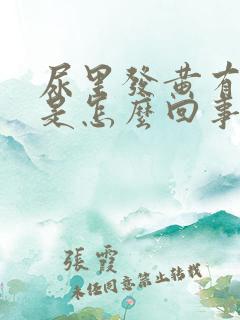 尿里發黃有
是怎麼回事
張霞
未经同意禁止转载